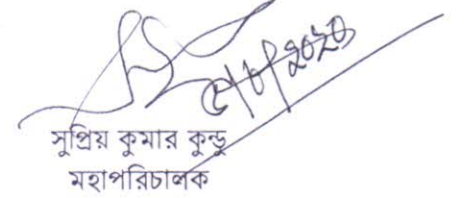 ৫/৮/২০২৩
সুপ্রিয় কুমার কুন্ডু
মহাপরিচালক